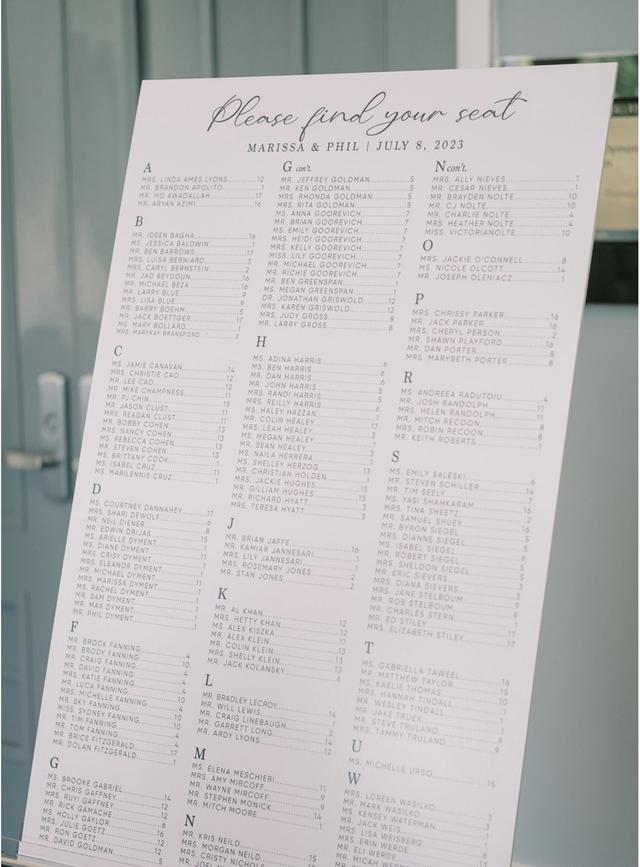 Please find your seat
MARISSA & PHIL | JULY 8, 2023
A
MRS. LINDA AMES LYONS 12
MR. BRANDON APOLITO 1
MR. MO AWADALLAH 17
MR. ARYAN AZIMI 16
B
MR. IDEEN BAGHA 16
MS. JESSICA BALDWIN 1
MR. BEN BARROWS 17
MRS. LUISA BERNIARD 3
MRS. CARYL BERNSTEIN 2
MR. JAD BEYDOUN 16
MR. MICHAEL BEZA 16
MR. LARRY BLUE 9
MRS. LISA BLUE 9
MR. BARRY BOEHM 5
MR. JACK BOETTGER 17
MS. MARY BOLLARD 1
MRS. MARYKAY BRANSFORD 2
C
MS. JAMIE CANAVAN 14
MRS. CHRISTIE CAO 12
MR. LEE CAO 12
MR. MIKE CHAMPNESS 11
MR. PJ CHIN 15
MR. JASON CLUST 11
MRS. REAGAN CLUST 11
MR. BOBBY COHEN 11
MRS. NANCY COHEN 13
MS. REBECCA COHEN 13
MR. STEVEN COHEN 13
MS. BRITTANY COOK 13
MS. ISABEL CRUZ 1
MS. MARILENNIS CRUZ 1
D
MS. COURTNEY DANNAHEY 17
MRS. SHARI DEWOLF 6
MR. NEIL DIENER 6
MR. EDWIN DRIJAS 8
MS. ARIELLE DYMENT 15
MS. DIANE DYMENT 1
MRS. CRISY DYMENT 1
MRS. ELEANOR DYMENT 1
MR. MICHAEL DYMENT 1
MRS. MARISSA DYMENT 1
MS. RACHEL DYMENT 1
MR. SAM DYMENT 1
MR. MAX DYMENT 1
MR. PHIL DYMENT 1
F
MR. BROCK FANNING 4
MR. BRODY FANNING 10
MR. CRAIG FANNING 4
MR. DAVID FANNING 10
MRS. KATIE FANNING 4
MR. LUCA FANNING 4
MRS. MICHELLE FANNING 10
MR. SKY FANNING 4
MISS. SYDNEY FANNING 10
MR. TIM FANNING 10
MR. TOM FANNING 4
MR. BRICE FITZGERALD 17
MR. DOLAN FITZGERALD 1
G
MS. BROOKE GABRIEL 14
MR. CHRIS GAFFNEY 14
MRS. RUYI GAFFNEY 12
MR. RICK GAMACHE 12
MS. HOLLY GAYLOR 6
MRS. JULIE GOETZ 16
MR. RON GOETZ 12
MR. DAVID GOLDMAN 12
G con't.
MR. JEFFREY GOLDMAN 5
MR. KEN GOLDMAN 5
MRS. RHONDA GOLDMAN 5
MRS. RITA GOLDMAN 5
MS. ANNA GOOREVICH 7
MR. BRIAN GOOREVICH 7
MS. EMILY GOOREVICH 7
MRS. HEIDI GOOREVICH 7
MRS. KELLY GOOREVICH 7
MISS. LILY GOOREVICH 7
MR. MICHAEL GOOREVICH 7
MR. RICHIE GOOREVICH 7
MR. BEN GREENSPAN 1
MS. MEGAN GREENSPAN 1
DR. JONATHAN GRISWOLD 12
MRS. KAREN GRISWOLD 12
MRS. JUDY GROSS 8
MR. LARRY GROSS 8
H
MS. ADINA HARRIS 6
MS. BEN HARRIS 6
MR. DAN HARRIS 6
MR. JOHN HARRIS 6
MRS. RANDI HARRIS 5
MRS. REILLY HARRIS 6
MS. HALEY HAZZAN 6
MR. COLIN HEALEY 1
MRS. LEAH HEALEY 17
MS. MEGAN HEALEY 3
MR. SEAN HEALEY 1
MS. NAILA HERRERA 3
MS. SHELLEY HERZOG 1
MR. CHRISTIAN HOLDEN 13
MRS. JACKIE HUGHES 1
MR. GILLIAM HUGHES 15
MR. RICHARD HYATT 15
MRS. TERESA HYATT 3
J
MR. BRIAN JAFFE 16
MR. KAMIAR JANNESARI 1
MRS. LILY JANNESARI 1
MRS. ROSEMARY JONES 2
MR. STAN JONES 2
K
MR. AL KHAN 12
MRS. HETTY KHAN 12
MS. ALEX KISZKA 12
MR. ALEX KLEIN 17
MR. COLIN KLEIN 13
MRS. SHELLY KLEIN 13
MR. JACK KOLANSKY 6
L
MR. BRADLEY LECROY 14
MR. WILL LEWIS 1
MR. CRAIG LINEBAUGH 14
MR. GARRETT LONG 2
MR. ARDY LYONS 12
M
MS. ELENA MESCHIERI 11
MRS. AMY MIRCOFF 9
MR. WAYNE MIRCOFF 9
MR. STEPHEN MONICK 14
MR. MITCH MOORE 1
N
MR. KRIS NEILD 15
MRS. MORGAN NEILD
MRS. CRISTY
N con't.
MRS. ALLY NIEVES 1
MR. CESAR NIEVES 1
MR. BRAYDEN NOLTE 10
MR. CJ NOLTE 10
MR. CHARLIE NOLTE 4
MRS. HEATHER NOLTE 4
MISS. VICTORIANOLTE 10
O
MRS. JACKIE O'CONNELL 8
MS. NICOLE OLCOTT 14
MR. JOSEPH OLENIACZ 1
P
MRS. CHRISSY PARKER 16
MR. JACK PARKER 16
MRS. CHERYL PERSON 2
MR. SHAWN PLAYFORD 16
MR. DAN PORTER 8
MRS. MARYBETH PORTER 8
R
MS. ANDREEA RADUTOIU 4
MR. JOSH RANDOLPH 11
MRS. HELEN RANDOLPH 11
MR. MITCH RECOON 8
MRS. ROBIN RECOON 8
MR. KEITH ROBERTS 1
S
MS. EMILY SALESKI 6
MR. STEVEN SCHILLER 14
MR. TIM SEELY 7
MS. YASI SHAHKARAM 16
MRS. TINA SHEETZ 2
MR. SAMUEL SHUEY 16
MR. BYRON SIEGEL 5
MRS. DIANNE SIEGEL 5
MS. ISABEL SIEGEL 6
MR. ROBERT SIEGEL 5
MRS. SHELDON SIEGEL 5
MR. ERIC SIEVERS 3
MRS. DIANA SIEVERS 3
MRS. JANE STELBOUM 9
MR. ROB STELBOUM 9
MR. CHARLES STERN 9
MR. ED STILEY 17
MRS. ELIZABETH STILEY 17
T
MS. GABRIELLA TAWEEL 16
MR. MATTHEW TAYLOR 15
MS. KAELIE THOMAS 10
MRS. HANNAH TINDALL 1
MR. WESLEY TINDALL 1
MR. JAKE TRUEK 1
MR. STEVE TRULAND 9
MRS. TAMMY TRULAND 9
U
MS. MICHELLE URSO 15
W
MRS. LOREEN WASILKO 3
MR. MARK WASILKO 3
MS. KENSEY WATERMAN
MR. JACK WEIS
MRS. LISA WEISBERG
MRS. ERIN WERDE
MR. ELI WERDE